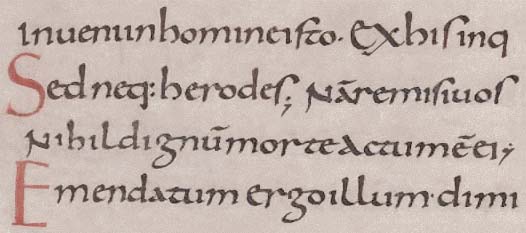 inueni in homine isto. Ex his inq
Sed neq: herodes; Nā remisi uos
Nihil dignū morte actum ē ei;
Emendatum ergo illum dimi